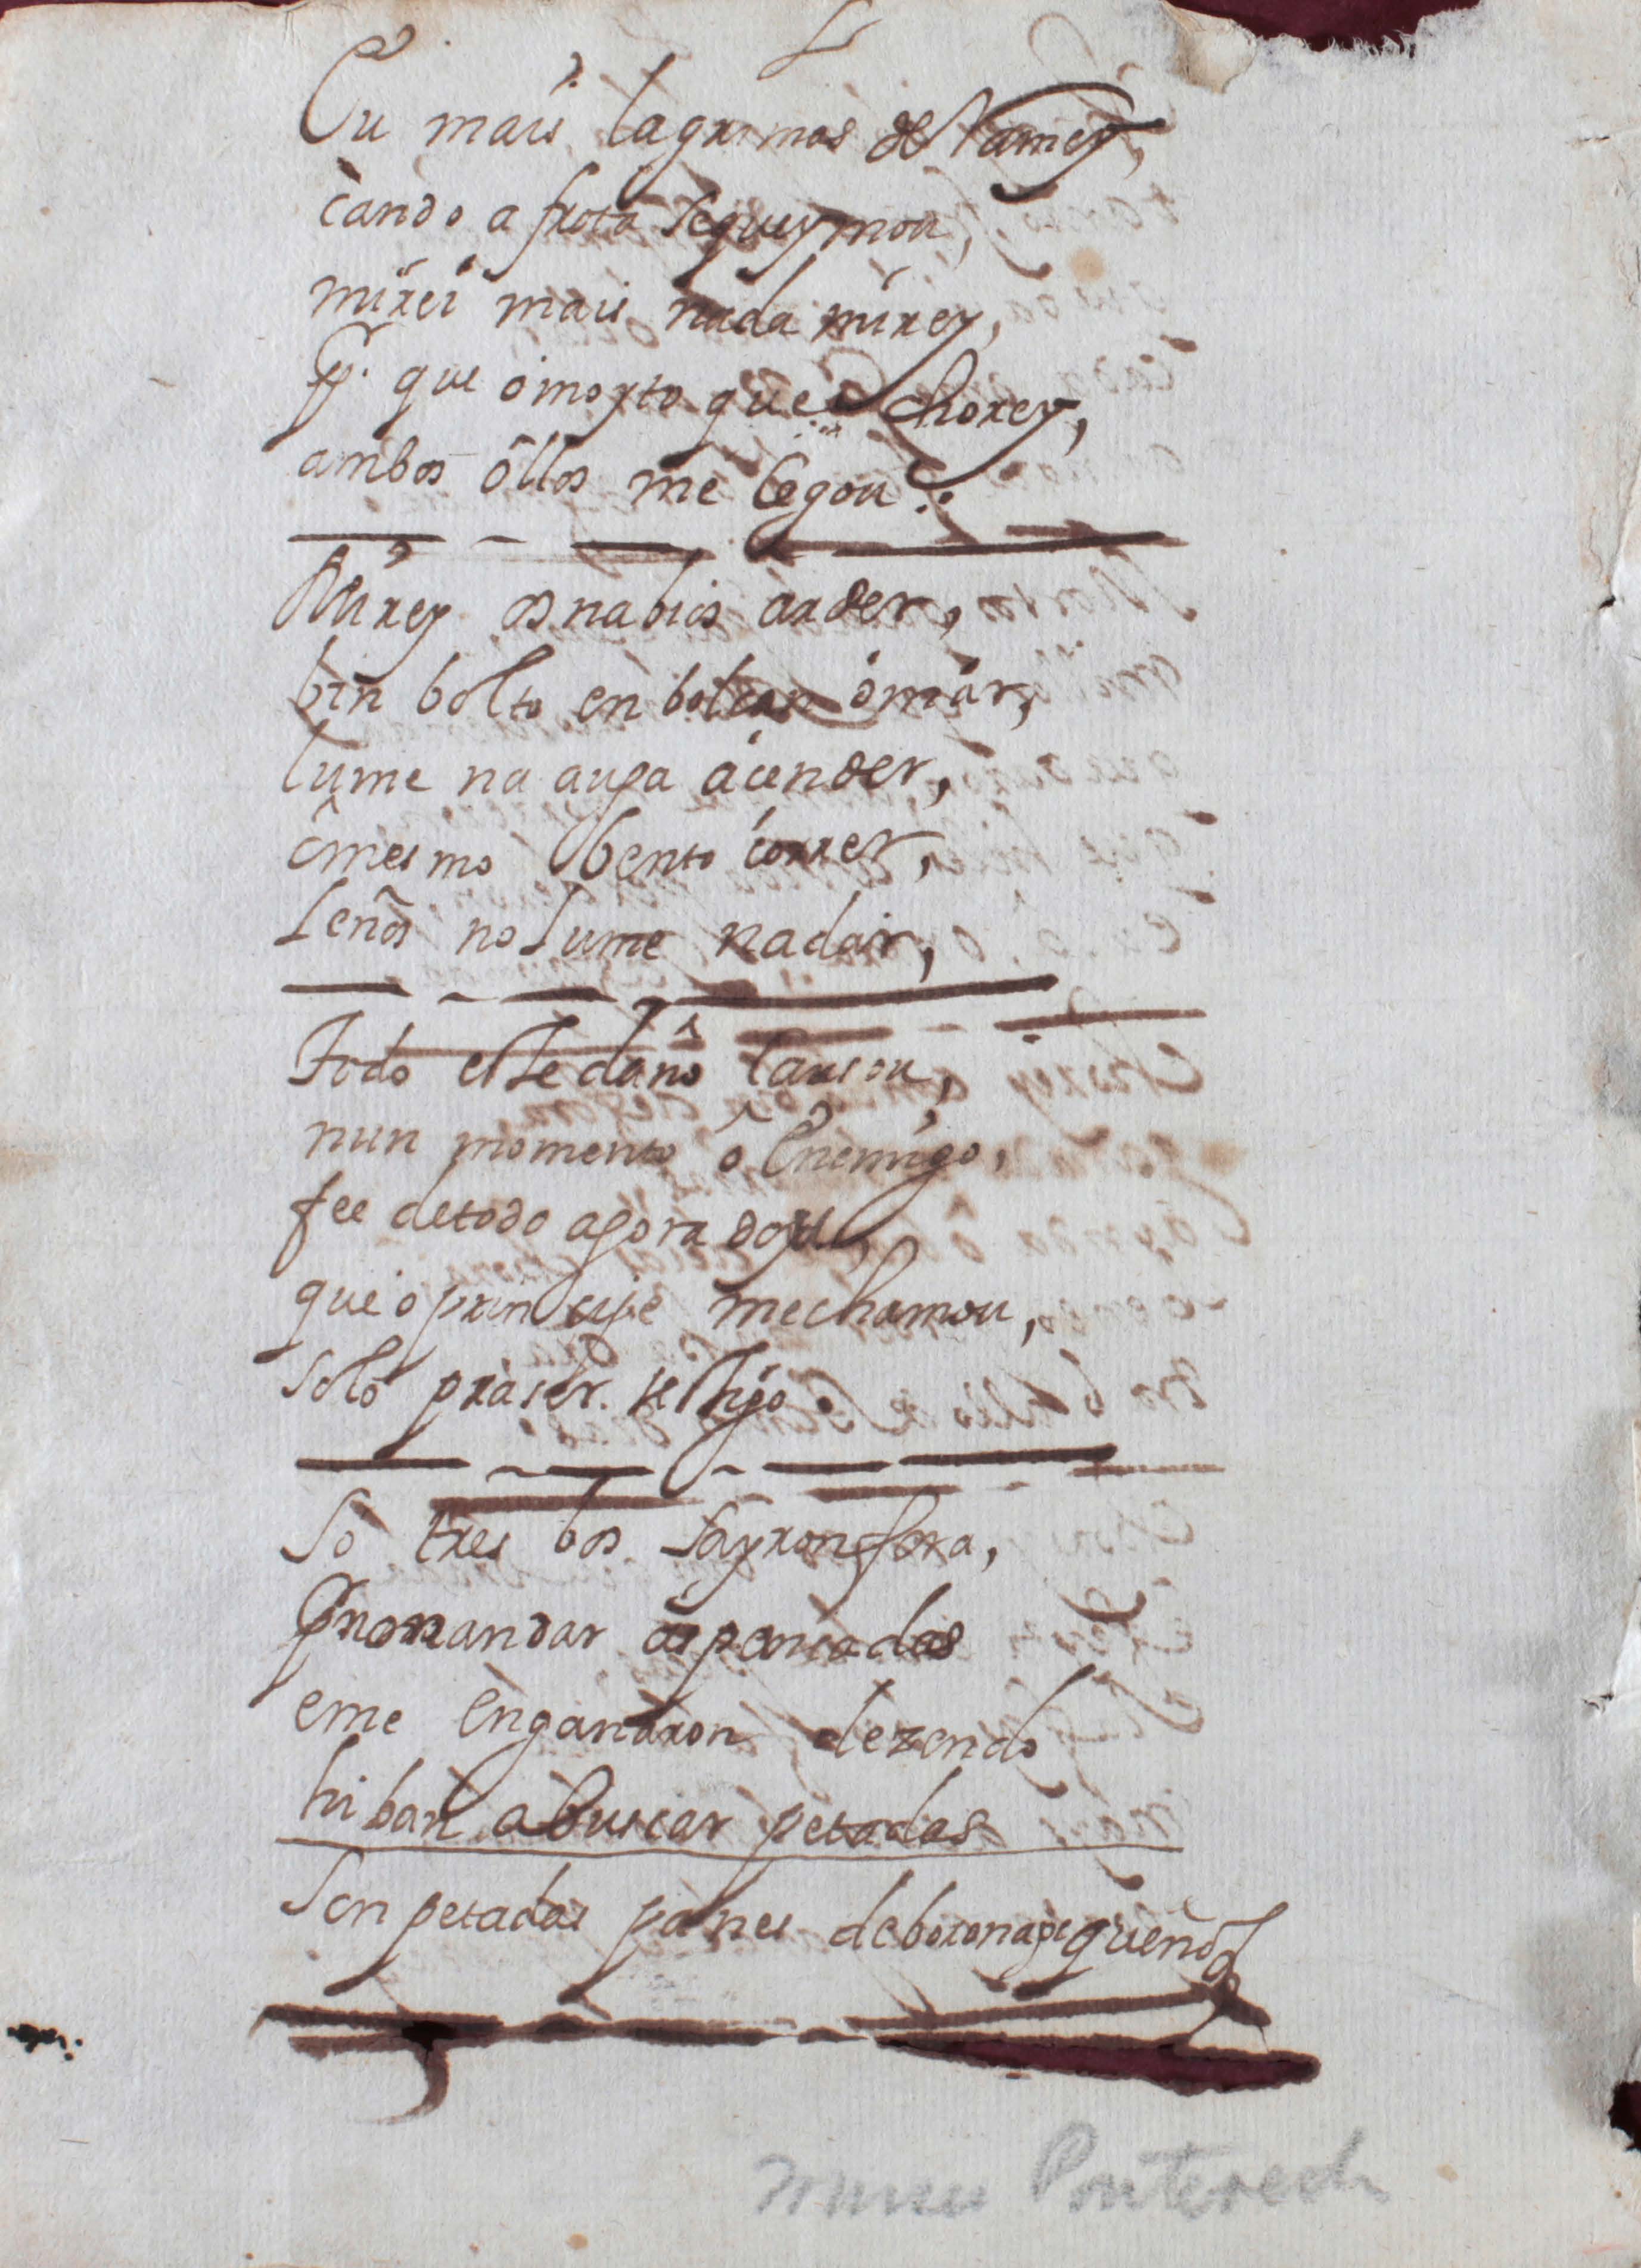 Eu mais lagrimas derramey,
cando a frota sequeymou,
mirei mais nada mirey,
P. que ò morto que chorey,
ambos ollos me Cegou.
Mirey os nabios arder,
bin bolto en bolcan ó mar,
lume na auga acender,
ó mesmo bento correr,
Leños no lume nadar,
Todo este daño Causou,
nun momento ô Enemigo,
fee de todo agora dou
que o principe mechamou,
solo para ser testigo.
So tres bos sayron fora,
P. no mandar as pancadas
eme Enganaron dezendo
hiban abuscar petadas
Son petadas panes deborona pequeños
museu Pontevedr